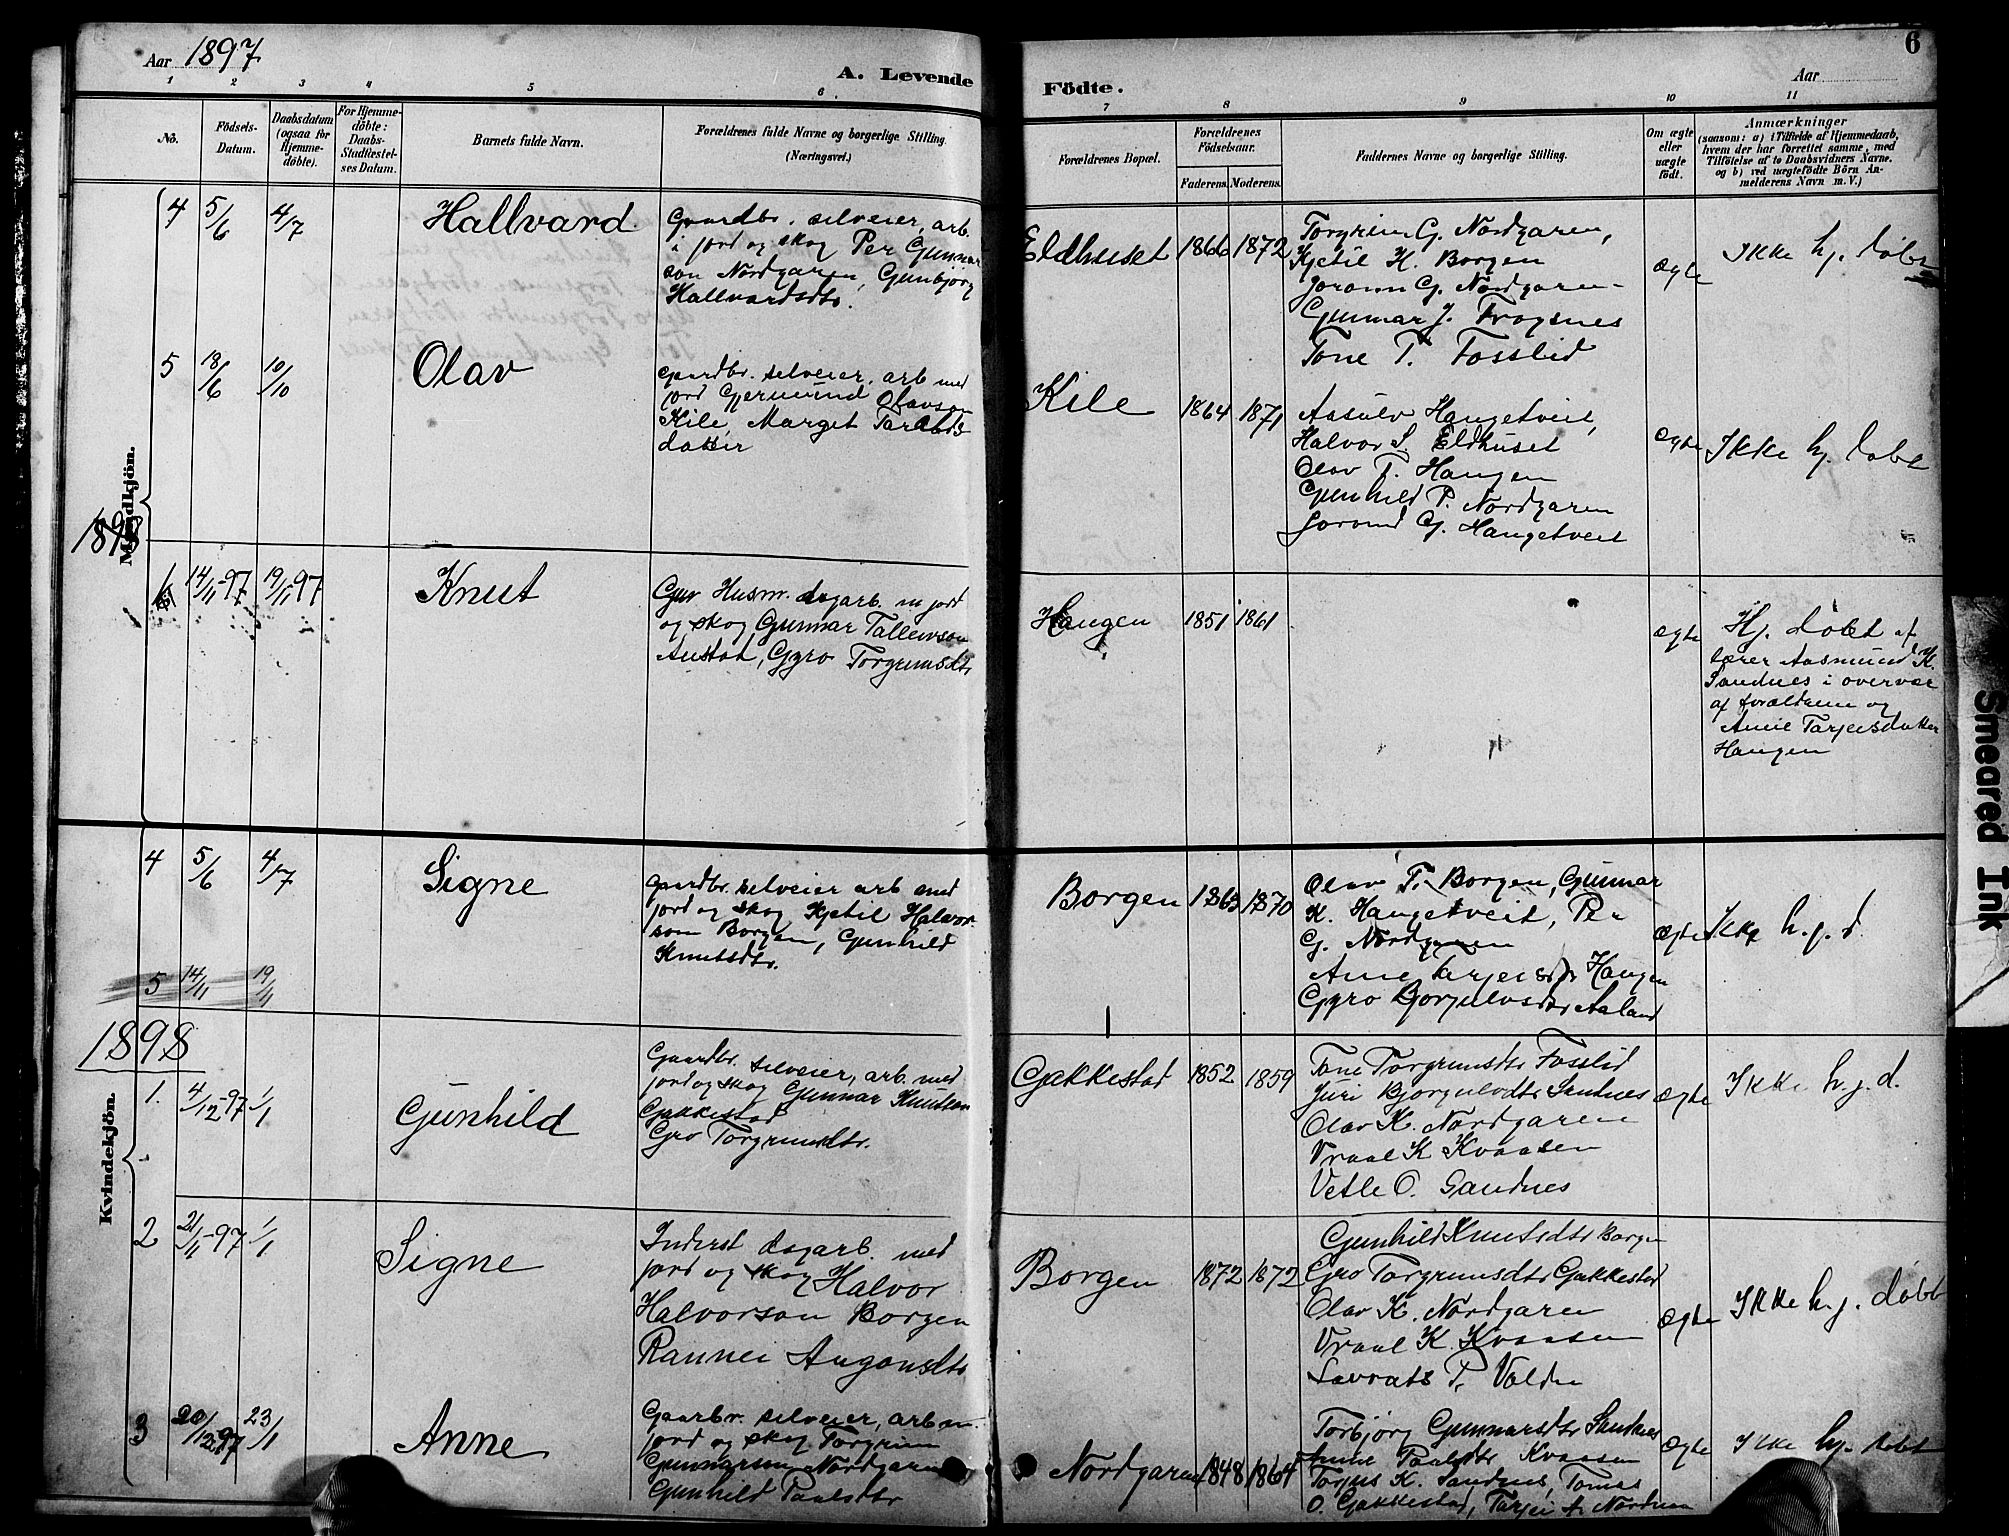 Aar 1897
A. Levende
Födte.
Aar
6
1 2 3 4 5 6 7 8 9 10 11
No.
Födsels-
Datum.
Daabsdatum
(ogsaa for
Hjemme-
döbte).
For Hjemme-
döbte:
Daabs-
Stadfæstel-
ses Datum.
Barnets fulde Navn.
Forældrenes fulde Navne og borgerlige Stilling.
(Næringsvei.)
Forældrenes Bopæl.
Forældrenes
Födselsaar.
Faderens. Moderens.
Faddernes Navne og borgerlige Stilling.
Om ægte
eller
uægte
födt.
Anmærkninger
(saasom: a) i Tilfælde af Hjemmedaab,
hvem der har forrettet samme, med
Tilföielse af to Daabsvidners Navne.
og b) ved uægtefödte Börn An-
melderens Navn m. V.)
Mandkjön.
4 5/6 4/7 Hallvard
Gaardbr. selveier, arb.
i jord og skog Per Gunnar
son Nordgaren, Gunbjorg
Hallvardsdtr.
Eldhuset 1866 1872
Torgrim G. Nordgaren,
Kjetil H. Borgen
Jorann G. Nordgaren
Gunnar J. Trogsnes
Tone T. Fosslid
ægte Ikke hj. döbt
5 18/6 10/10 Olav
Gaardbr. selveier, arb med
jord Gjermund Olavson
Kile, Marget Taraldsdatter
Kile 1864 1871
Aasulv Haugetveit,
Halvor S. Eldhuset
Olav T. Haugen
Gunhild P. Nordgaren
Jorand G. Haugetveit
ægte Ikke hj. döbt
1898
1 14/11-97 19/11 97 Knut
Husm. dagarb. m jord
og skog Gunnar Tallevson
Austad, Gyro Torgrimsdtr
Haugen 1851 1861
ægte
Hj. döbt af
lærer Aasmund K.
Sandnes i overvær
af forældrene og
Anne Tarjeisdatter
Haugen
Kvindekjön.
4 5/6 4/7 Signe
Gaardbr. selveier arb med
jord og skog Kjetil Halvor
son Borgen, Gunhild
Knutsdtr.
Borgen 1863 1870
Olav T. Borgen, Gunnar
K. Haugetveit, Per
G. Nordgaren
Anne Tarjeisdtr Haugen
Gyro Bjorgulvsdtr Aaland
ægte Ikke h.j.d
5 14/11 19/11
1898
1. 4/12-97 1/1 Gunhild
Gaardbr. selveier, arb. med
jord og skog Gunnar Knutson
Gakkestad
Gro Torgrimsdtr.
Gakkestad 1852 1859
Tone Torgrimsdtr Fosslid
Juri Bjorgulvdtr Sandnes
Olav K. Nordgaren
Vraal K Kvaasen
Vetle O. Sandnes
ægte Ikke h.j.d.
2 21/11-97 1/1 Signe
Inderst dagarb. med
jord og skog Halvor
Halvorson Borgen
Rannei Augonsdtr
Borgen 1872 1872
Gunhild Knutsdtr Borgen
Gro Torgrimsdtr Gakkestad
Olav K. Nordgaren
Vraal K. Kvaasen
Lavrats P. Valden
ægte Ikke h.j. döbt
3 20/12 97 23/1 Anne
Gaarbr. selveier, arb m.
jord og skog Torgrim
Gunnarson Nordgaren
Gunhild Paalsdtr
Nordgaren 1848 1864
Torbjörg Gunnarsdtr Sandnes
Anne Paalsdtr Kvaasen
Torjus K. Sandnes, Tomas
O. Gakkestad, Tarjei
ægte Ikke hj. döbt
Smeared Ink